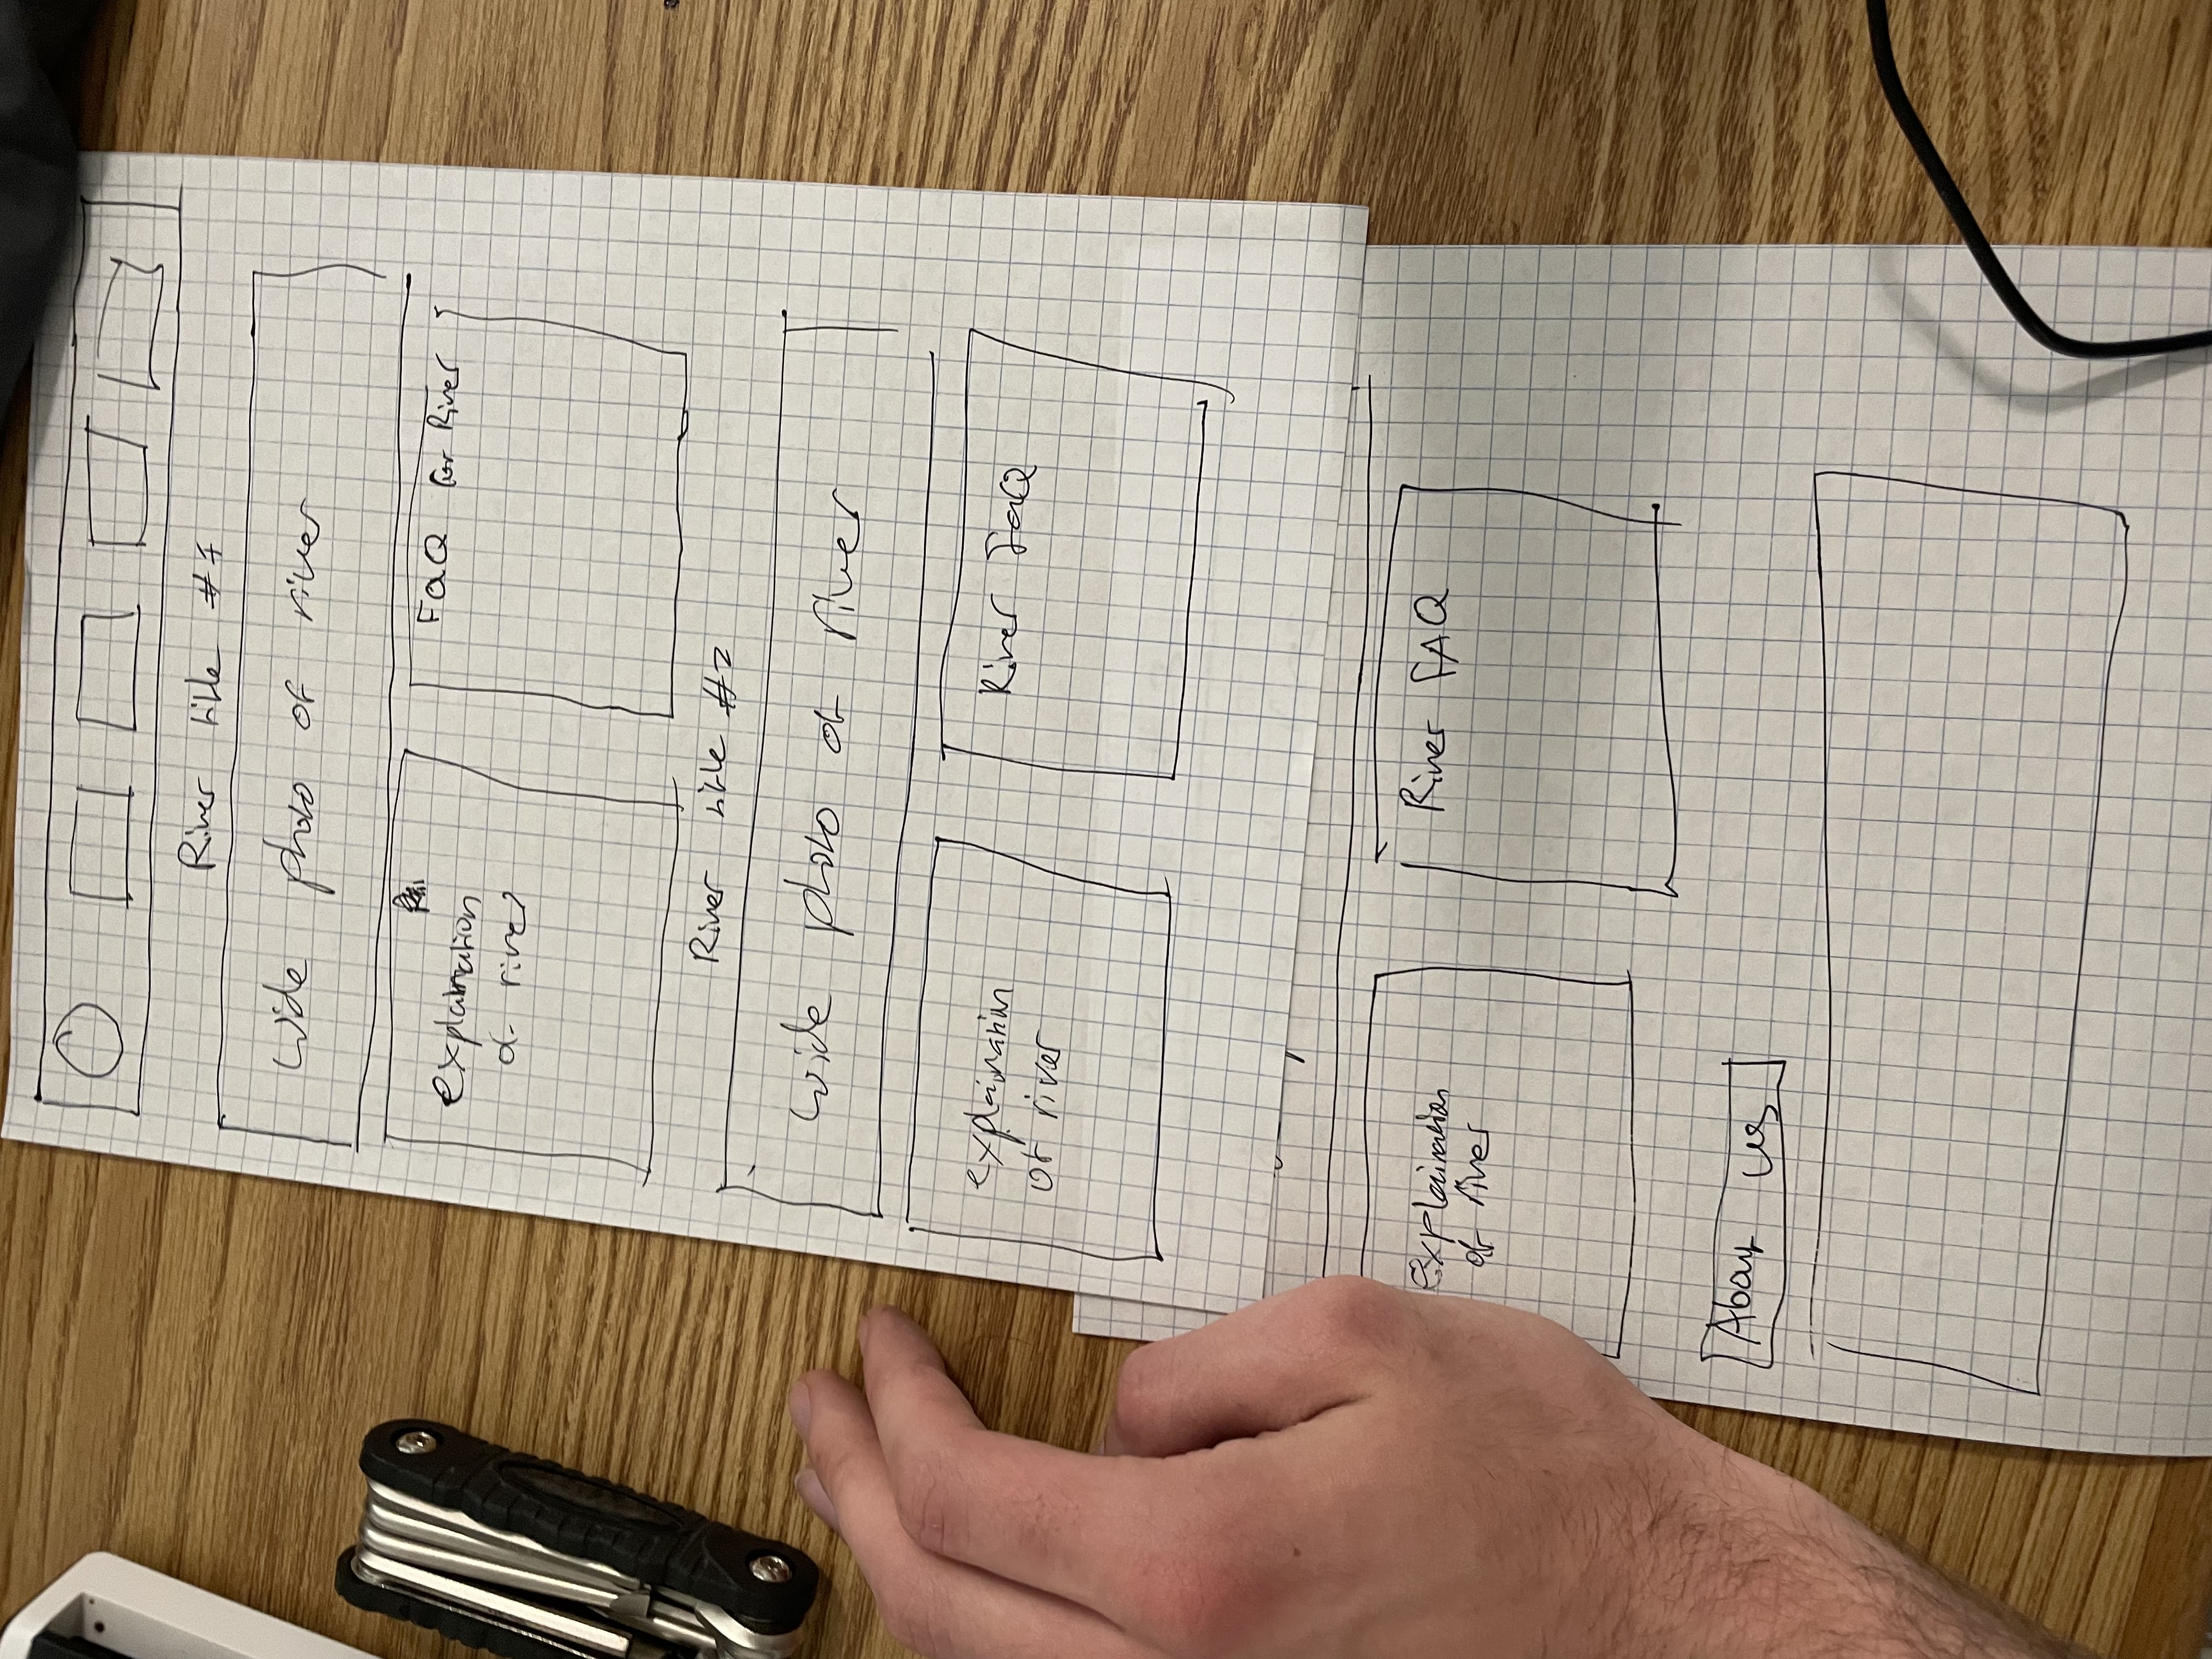 River title #1
wide photo of river
explaination
of river
FaQ for River
River title #2
wide photo of river
explaination
of river
River FaQ
explaination
of river
River FAQ
About us